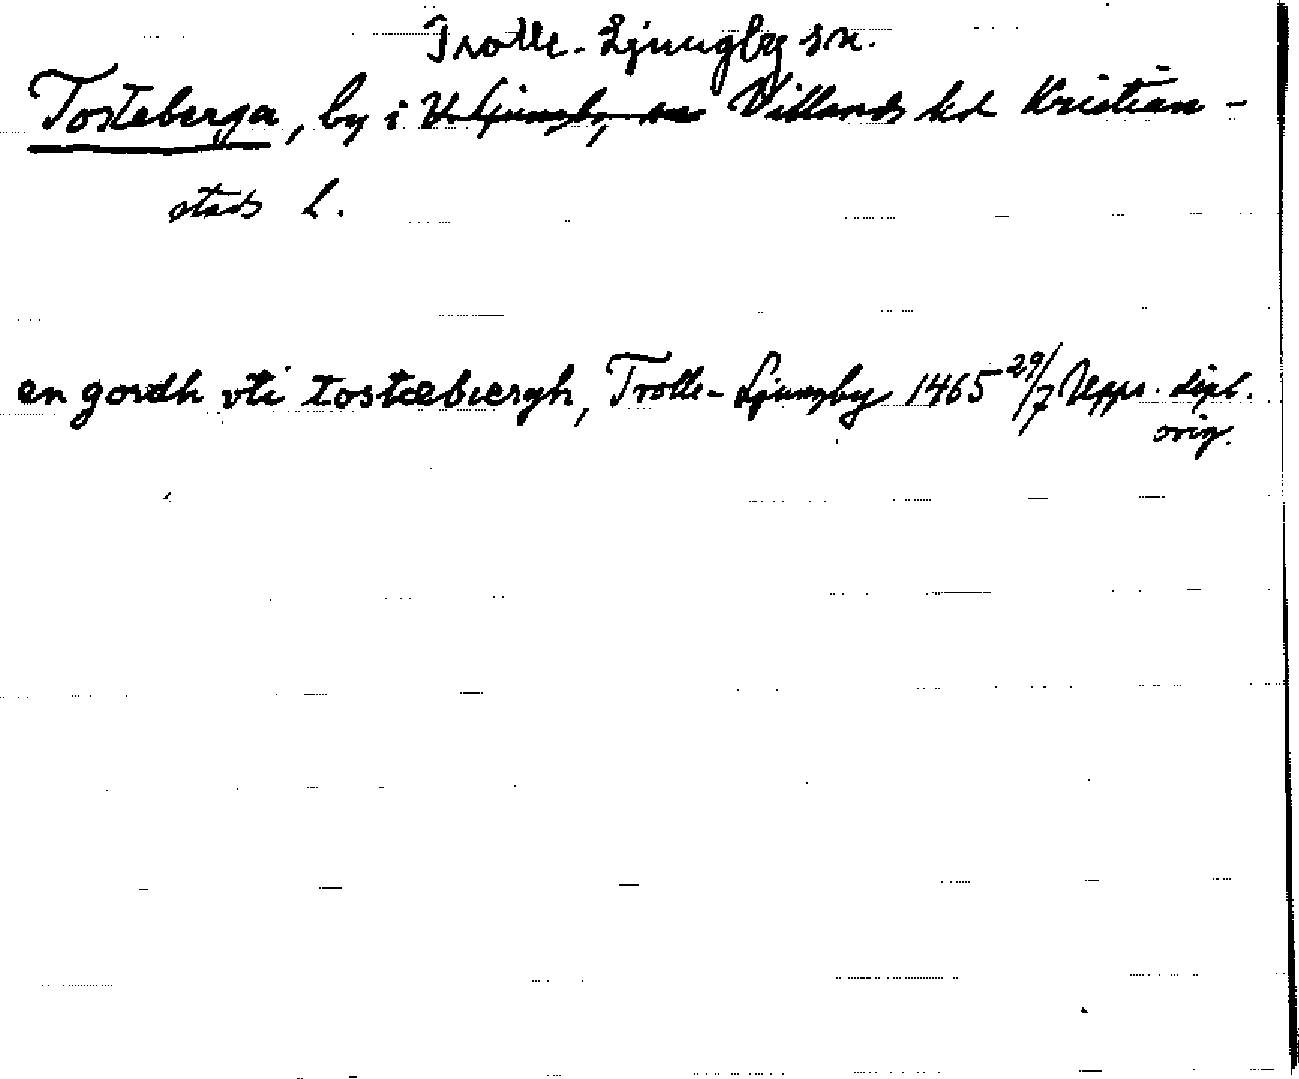 Trolle-Ljungby sn.
Tosteberga, by i V. Ljungby sn Villands hd Kristian-
stads l.
en gordh vti tostæbiergh, Trolle-Ljungby 1465 29/7 Upps. dipl.
orig.